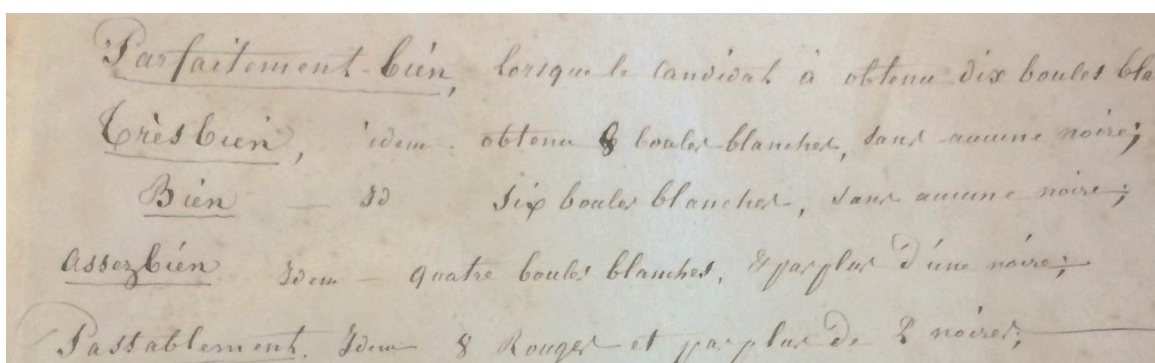 Parfaitement-bien, lorsque le Candidat à obtenu dix boules bla
Très bien, idem - obtenu 8 boules blanches, sans aucune noire;
Bien — Id six boules blanches, sans aucune noire;
assez bien Idem - quatre boules blanches, & pas plus d'une noire;
Passablement. Idem 8 Rouges et pas plus de 2 noires;